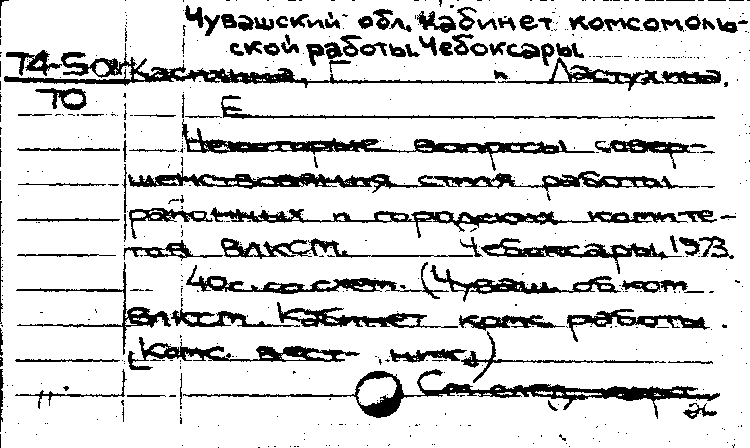 Чувашский обл. кабинет комсомоль-
ской работы. Чебоксары.
74-50
70
Г. и Ластухина,
Е
Некоторые вопросы совер-
шенствования стиля работы
районных и городских комите-
тов ВЛКСМ. Чебоксары, 1973.
40 с. со схем. (Чуваш. обком
ВЛКСМ. Кабинет комс. работы.
[Комс. вест- ник])
См. след. карт.